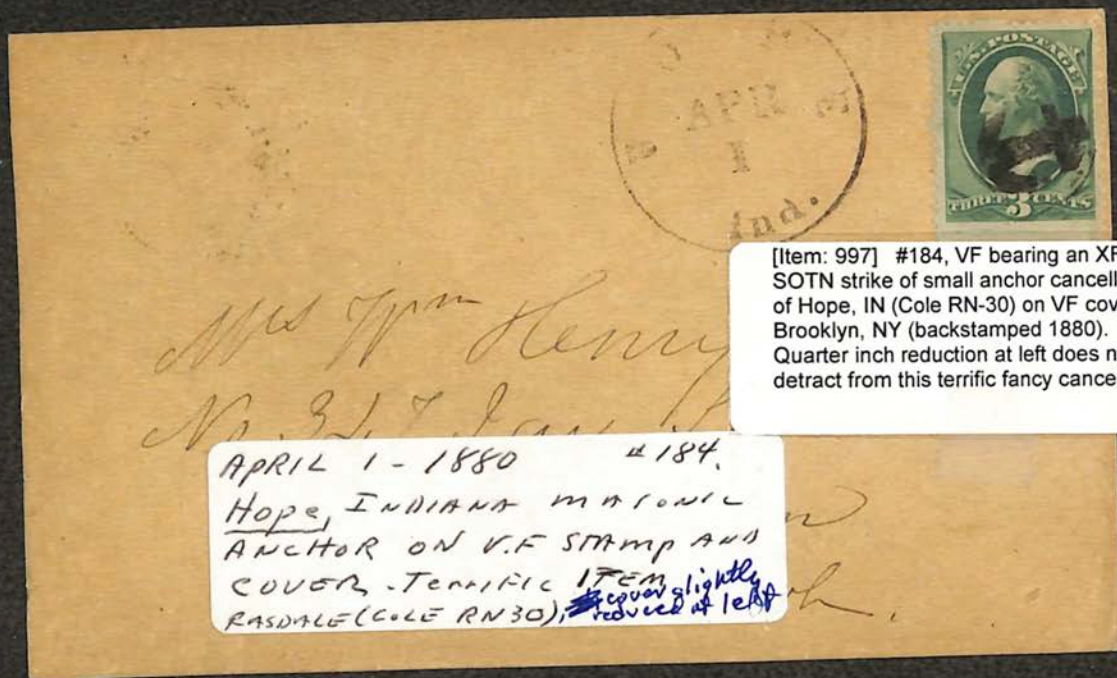 APR
1
Ind.
U.S. POSTAGE
THREE 3 CENTS
[Item: 997] #184, VF bearing an XF
SOTN strike of small anchor cancell
of Hope, IN (Cole RN-30) on VF cov
Brooklyn, NY (backstamped 1880).
Quarter inch reduction at left does n
detract from this terrific fancy cance
Mrs Wm Henry
No.
APRIL 1 - 1880 #184.
Hope, INDIANA MASONIC
ANCHOR ON V.F STAMP AND
COVER - TERRIFIC ITEM
RASDALE (COLE RN30), cover slightly
reduced at left